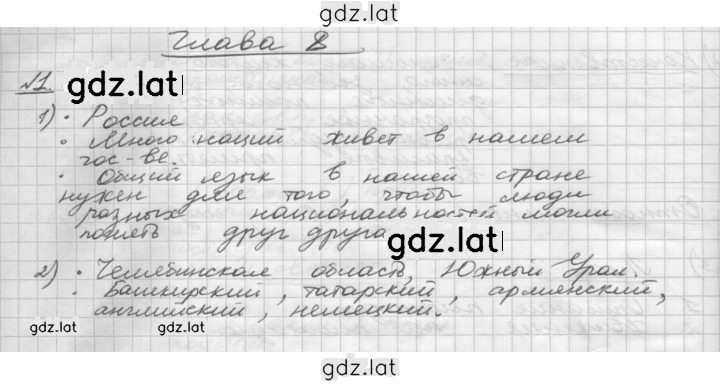 gdz.lat
Глава 8
№1. gdz.lat
1) · Россия
· Много наций живет в нашем
гос-ве.
· Общий язык в нашей стране
нужен для того, чтобы люди
разных национальностей могли
понять друг друга gdz.lat
2) · Челябинская область, Южный Урал.
· Башкирский, татарский, армянский,
английский, немецкий.
gdz.lat gdz.lat gdz.lat
gdz.lat